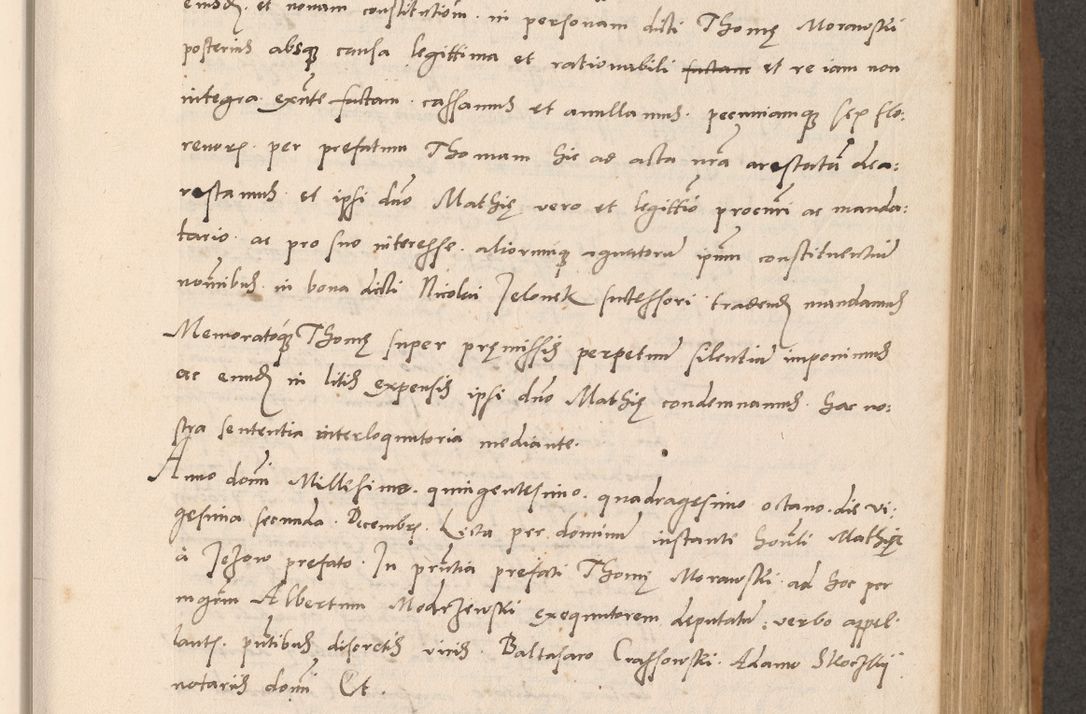 eiusdem. et nouam constitutiom̃. in personam dicti Thomę Morawski
posterius absqȝ causa legittima et rationabili factam et re iam non
integra. exñte factam. cassamus et anullamus. pecuniamqȝ sex flo:
renorꝫ. per prefatum Thomam hic ad acta nr̃a arestatã dea:
restamus. et ipsi dño Mathię vero et legittĩo procurri ac manda:
tario. ac pro suo interesse. aliorumqȝ aguatorũ ipsum constituentiũ
noĩnibus. in bona dicti Nicolai Jelonek successori tradendꝫ mandamus
Memoratoqȝ Thomę super pręmissis perpetuũ silentiũ imponimus
ac eundꝫ in litis expensis ipsi dño Mathię condemnamus. hac no:
stra sententia interloquutoria mediante.
Anno domĩ Millesimo. quingentesimo. quadragesimo octauo. die vi:
gesima secunda. Decembrꝫ. Lecta per dominum instanti honĩli Mathia
à Jezow prefato. In pñtia prefati Thomę Morawski. ad hoc per
mgr̃m Albertum Modrzewski exequutorem deputatũ, verbo appel:
lantꝫ. pñtibus discretis viris. Baltasaro Crassowski. Adamo Skoczkÿ
notariis domĩ Et.